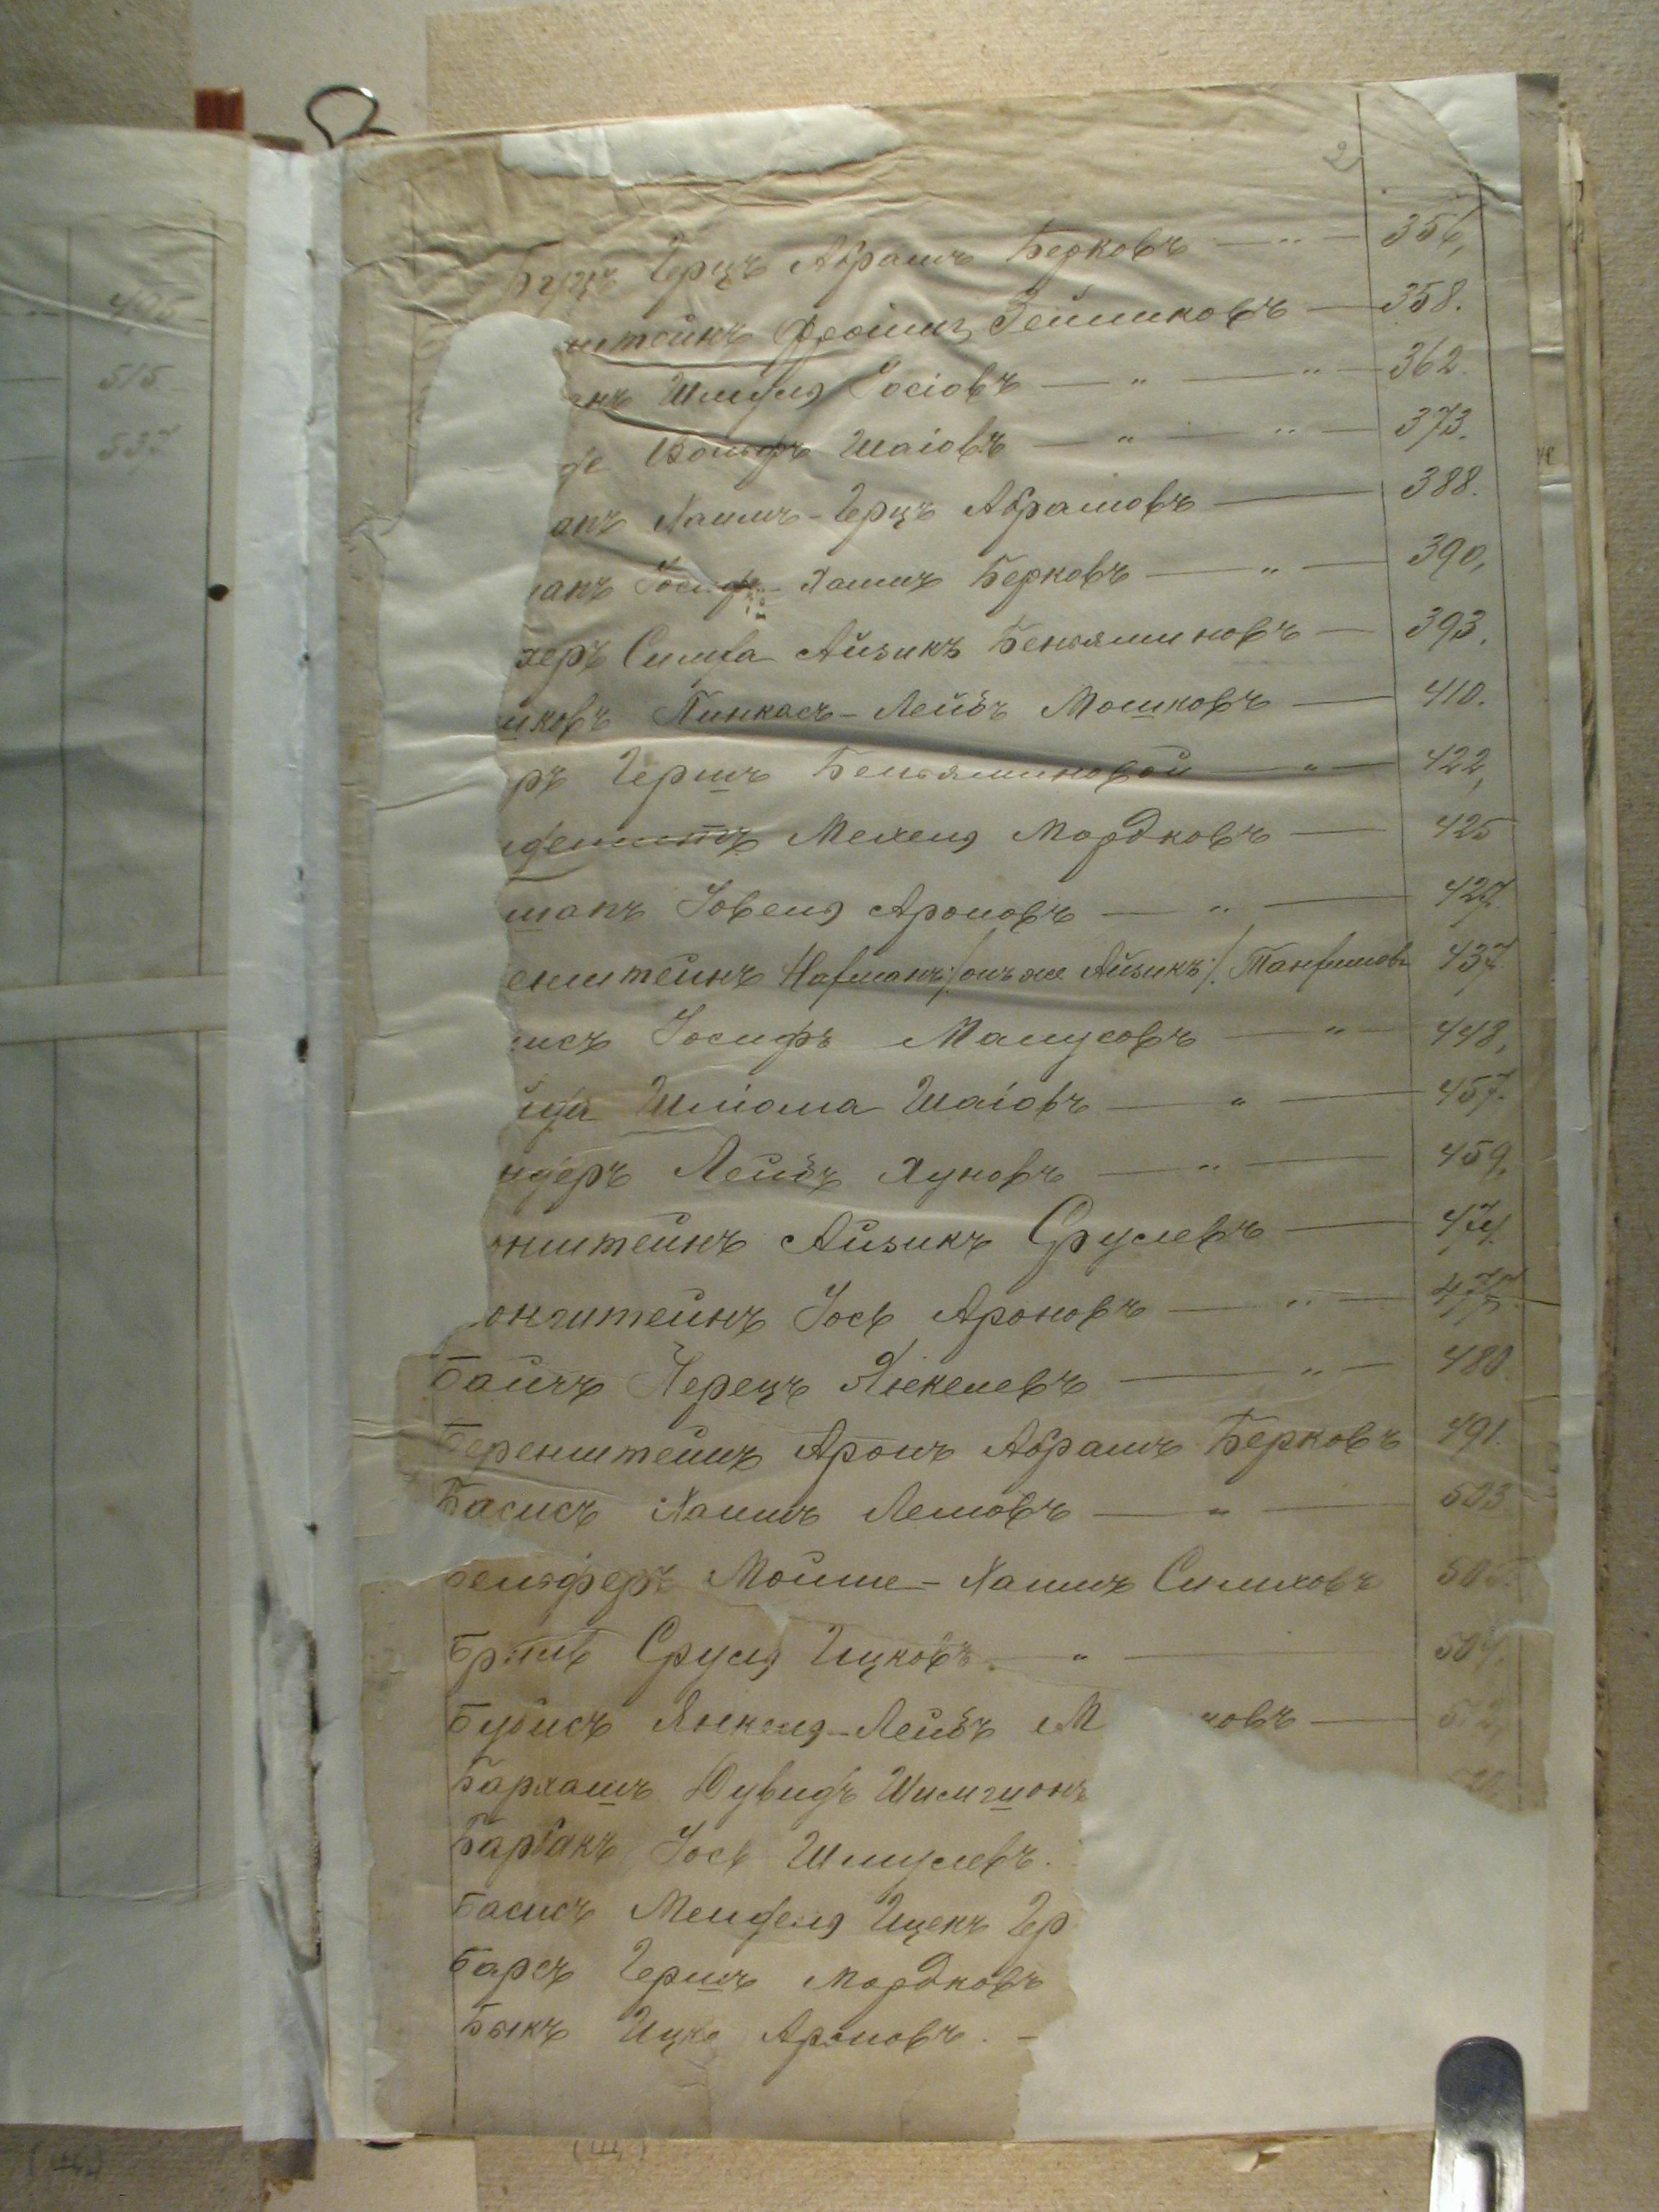 2
Герцъ Абрамъ Берковъ — „ — 356,
штейнъ Фроимъ Зейликовъ — 358.
нъ Шмуля Іосіовъ — „ — „ — 362.
Вольфъ Шаіовъ — „ — „ — 373.
анъ Хаимъ-Герцъ Абрамовъ — 388.
манъ Іосифъ-Хаимъ Берковъ — „ — 390,
херъ Симха Айзикъ Беньяминовъ — 393.
шковъ Пинкасъ-Лейбъ Мошковъ — 410.
ръ Гершъ Беньяминовой — „ — 422,
Мехеля Мордковъ — 425
манъ Іовеля Ароновъ — „ — 427.
енштейнъ Нахманъ /онъ же Айзикъ/. Танхумовъ 437.
исъ Іосифъ Манусовъ — „ — 448,
йда Шліома Шаіовъ — „ — 457.
ндеръ Лейбъ Хуновъ — „ — 459,
нштейнъ Айзикъ Срулевъ — 474.
онштейнъ Іось Ароновъ — „ — 477.
Перецъ Янкелевъ — „ — 480.
Беренштейнъ Аронъ Абрамъ Берковъ 491.
Басисъ Хаимъ Лемовъ — „ — 503
Мойше-Хаимъ Симховъ 505.
Бриль Сруля Ицковъ. — „ — 507.
Янкеля-Лейбъ М новъ —
Бархашъ Дувидъ Шимшонъ
Барбакъ Іось Шмулевъ.
Басисъ Менделя Ицекъ Гер
Барсъ Гершъ Мордковъ
Быкъ Ицко Ароновъ. —
495
515.
537